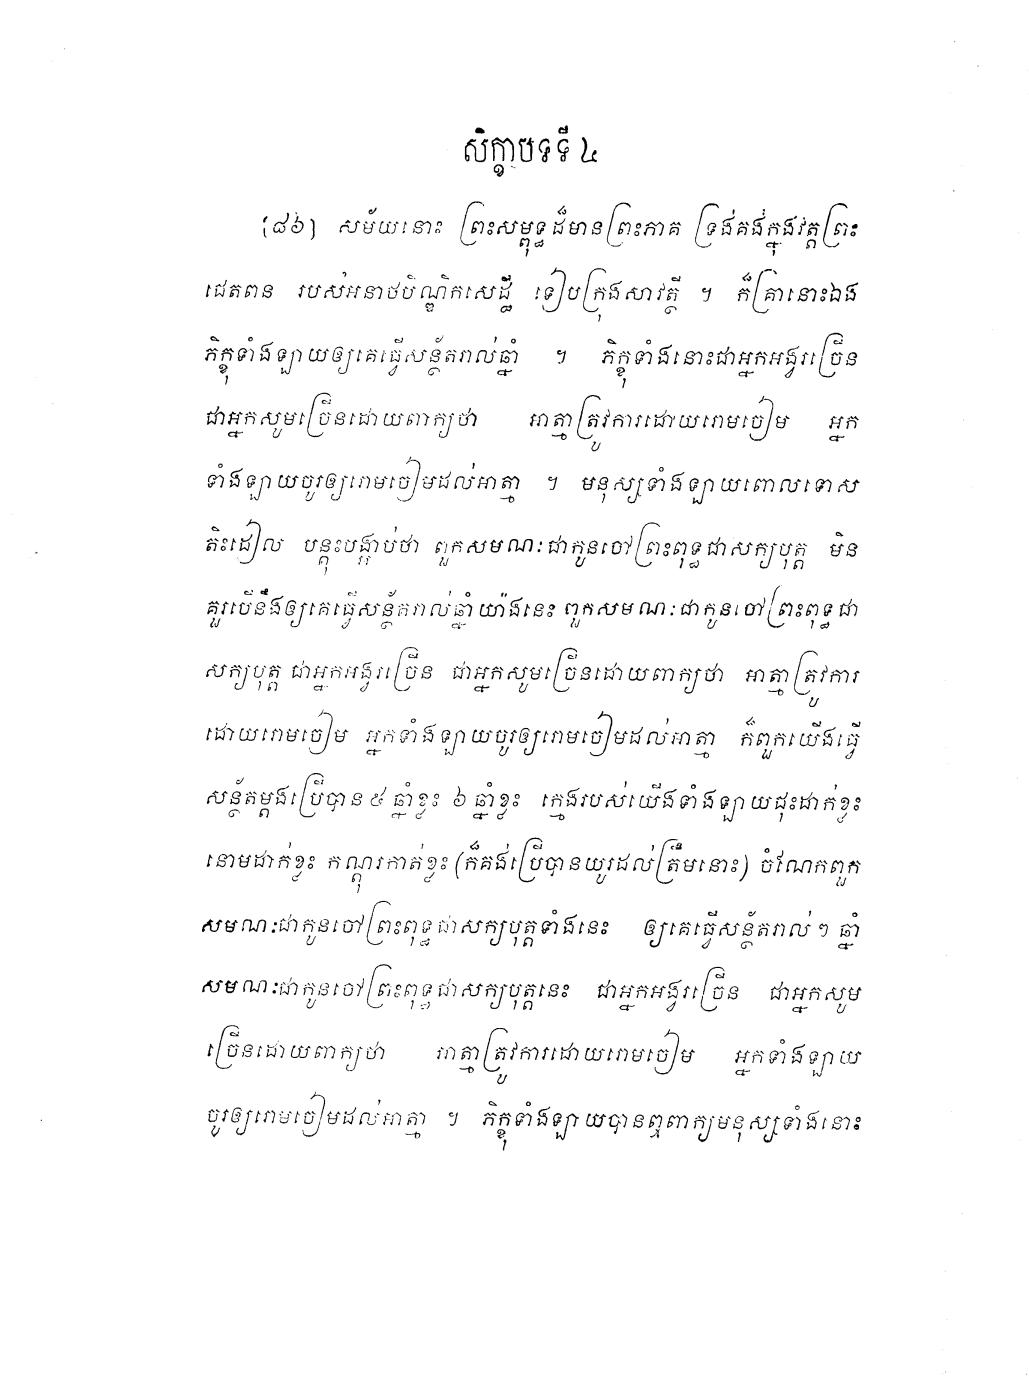 សិក្ខាបទទី ៤
[៨៦] សម័យនោះ ព្រះសម្ពុទ្ធដ៏មានព្រះភាគ ទ្រង់គង់ក្នុងវត្តព្រះ
ជេតពន របស់អនាថបិណ្ឌិកសេដ្ឋី ទៀបក្រុងសាវត្ថី ។ ក៏គ្រានោះឯង
ភិក្ខុទាំងឡាយឲ្យគេធ្វើសន្ថ័តរាល់ឆ្នាំ ។ ភិក្ខុទាំងនោះជាអ្នកអង្វរច្រើន
ជាអ្នកសូមច្រើនដោយពាក្យថា អាត្មាត្រូវការដោយរោមចៀម អ្នក
ទាំងឡាយចូរឲ្យរោមចៀមដល់អាត្មា ។ មនុស្សទាំងឡាយពោលទោស
តិះដៀល បន្តុះបង្អាប់ថា ពួកសមណៈជាកូនចៅព្រះពុទ្ធជាសក្យបុត្ត មិន
គួរបើនឹងឲ្យគេធ្វើសន្ថ័តរាល់ឆ្នាំយ៉ាងនេះ ពួកសមណៈជាកូនចៅព្រះពុទ្ធជា
សក្យបុត្ត ជាអ្នកអង្វរច្រើន ជាអ្នកសូមច្រើនដោយពាក្យថា អាត្មាត្រូវការ
ដោយរោមចៀម អ្នកទាំងឡាយចូរឲ្យរោមចៀមដល់អាត្មា ក៏ពួកយើងធ្វើ
សន្ថ័តម្តងប្រើបាន ៥ ឆ្នាំខ្លះ ៦ ឆ្នាំខ្លះ ក្មេងរបស់យើងទាំងឡាយជុះដាក់ខ្លះ
នោមដាក់ខ្លះ កណ្តុរកាត់ខ្លះ (ក៏គង់ប្រើបានយូរដល់ត្រឹមនោះ) ចំណែកពួក
សមណៈជាកូនចៅព្រះពុទ្ធជាសក្យបុត្តទាំងនេះ ឲ្យគេធ្វើសន្ថ័តរាល់ៗ ឆ្នាំ
សមណៈជាកូនចៅព្រះពុទ្ធជាសក្យបុត្តនេះ ជាអ្នកអង្វរច្រើន ជាអ្នកសូម
ច្រើនដោយពាក្យថា អាត្មាត្រូវការដោយរោមចៀម អ្នកទាំងឡាយ
ចូរឲ្យរោមចៀមដល់អាត្មា ។ ភិក្ខុទាំងឡាយបានឮពាក្យមនុស្សទាំងនោះ